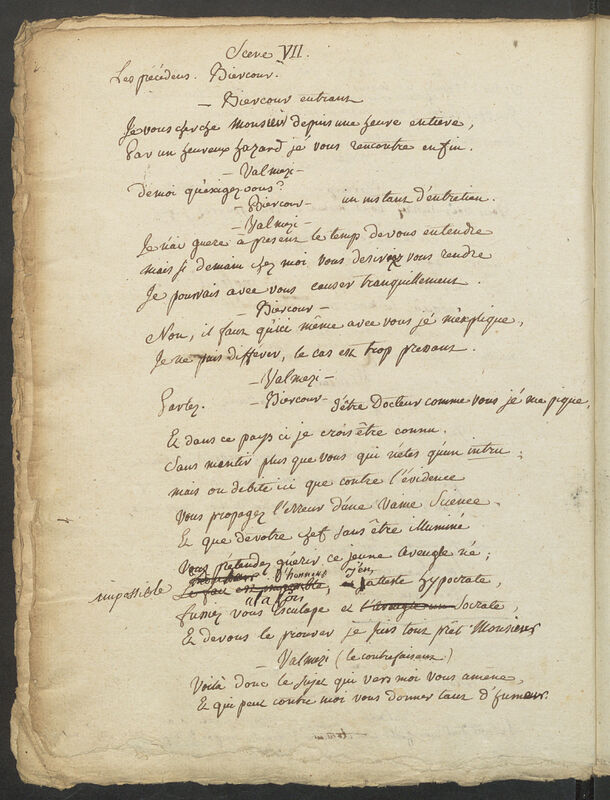 Scene VII.
Les précédens. Biercour.
— Biercour entrant
Je vous cherche Monsieur depuis une heure entiere,
Par un heureux hazard je vous rencontre enfin.
— Valmezi —
de moi qu'exigez vous?
— Biercour — un instant d'entretien.
— Valmezi —
Je n'ai guere à present le temp de vous entendre
mais si demain chez moi vous desirez vous rendre
Je pourrais avec vous causer tranquillement.
— Biercour —
Non, il faut qu'ici même avec vous je m'explique,
Je ne puis différer, le cas est trop pressant.
— Valmezi —
Parlez. — Biercour — d'être Docteur comme vous je me pique,
Et dans ce pays ci je crois être connu.
Sans mentir plus que vous qui n'etes qu'un intru;
mais on debite ici que contre l'évidence
Vous propagez l'erreur d'une vaine Science
Et que de votre chef sans être illuminé
Vous prétendez guerir ce jeune aveugle né;
impossible Le fait est impossible, j'en atteste hypocrate,
fussiez vous Esculape et à la fois Socrate,
Et de vous le prouver je suis tout prêt Monsieur
— Valmezi (le contrefaisant)
Voilà donc le sujet qui vers moi vous amene,
Et qui peut contre moi vous donner tant d'humeur.